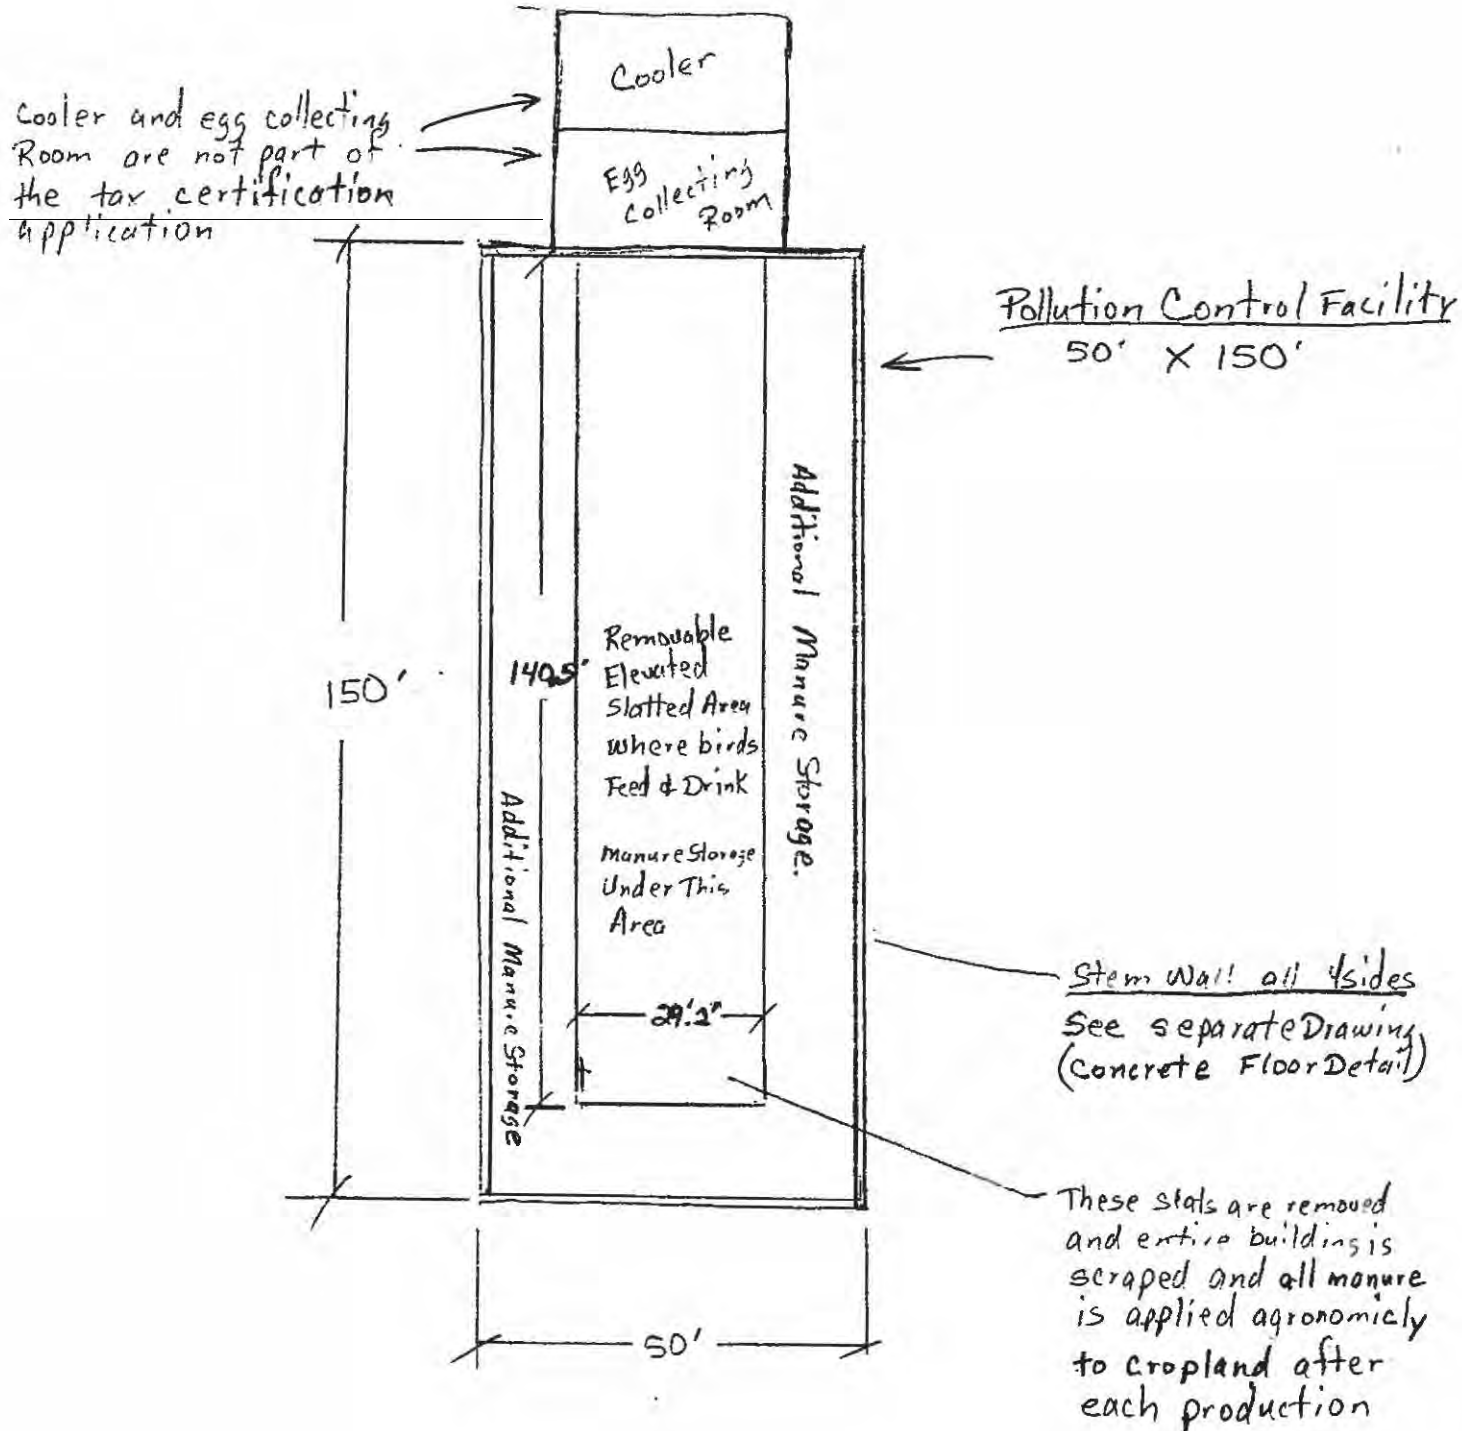 Cooler
Cooler and egg collecting
Room are not part of
the tax certification
application
Egg
Collecting
Room
Pollution Control Facility
50' X 150'
150'
140.5'
Removable
Elevated
Slatted Area
where birds
Feed & Drink
Manure Storage
Under This
Area
Additional Manure Storage.
Additional Manure Storage
29'.2"
Stem Wall all 4 sides
See separate Drawing
(Concrete Floor Detail)
These slats are removed
and entire building is
scraped and all manure
is applied agronomicly
to cropland after
each production
50'